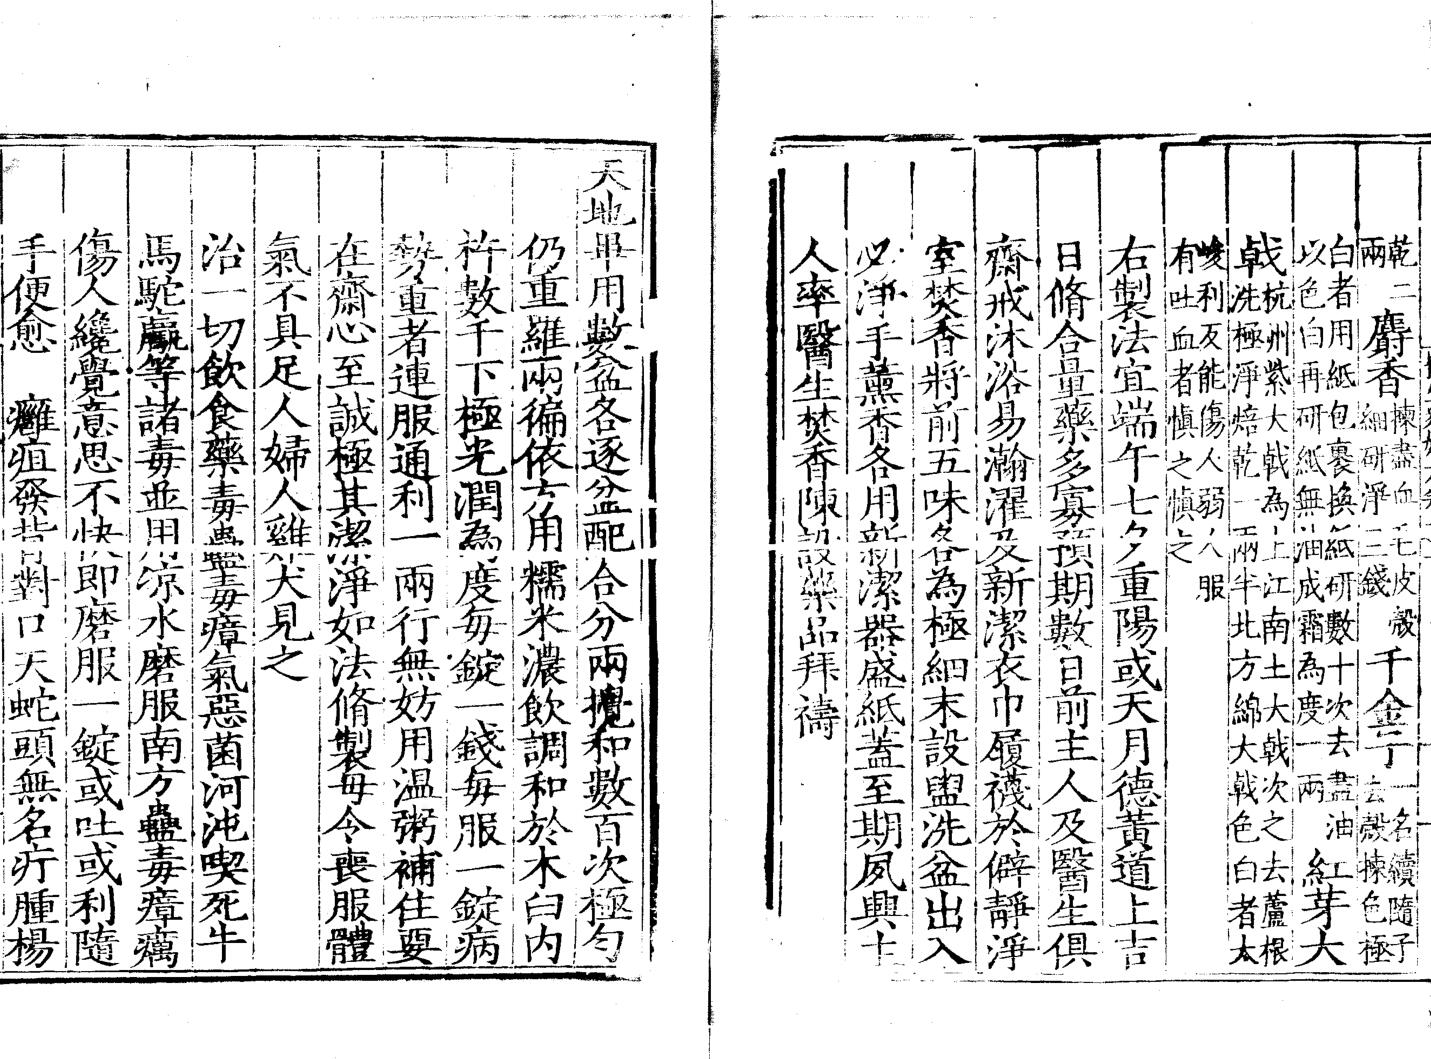 乾二
兩
麝香
揀盡血毛皮殼
細研淨三錢
千金子
一名續隨子
去殼揀色極
白者用紙包裹換紙研數十次去盡油
以色白再研紙無油成霜為度一兩
紅芽大
戟
杭州紫大戟為上江南土大戟次之去蘆根
洗極淨焙乾一兩半北方綿大戟色白者太
峻利反能傷人弱人服
有吐血者慎之慎之
右製法宜端午七夕重陽或天月德黃道上吉
日脩合量藥多寡預期數日前主人及醫生俱
齋戒沐浴易瀚濯及新潔衣巾履襪於僻靜淨
室焚香將前五味各為極細末設盥洗盆出入
必淨手薰香各用新潔器盛紙蓋至期夙興主
人率醫生焚香陳設藥品拜禱
天地畢用數盆各逐盆配合分兩攪和數百次極勻
仍重羅兩徧依方用糯米濃飲調和於木臼內
杵數千下極光潤為度每錠一錢每服一錠病
勢重者連服通利一兩行無妨用温粥補住要
在齋心至誠極其潔淨如法脩製毋令喪服體
氣不具足人婦人雞犬見之
治一切飲食藥毒蠱毒瘴氣惡菌河沌喫死牛
馬駝驘等諸毒並用凉水磨服南方蠱毒瘴癘
傷人纔覺意思不快即磨服一錠或吐或利隨
手便愈　癰疽發背對口天蛇頭無名疔腫楊